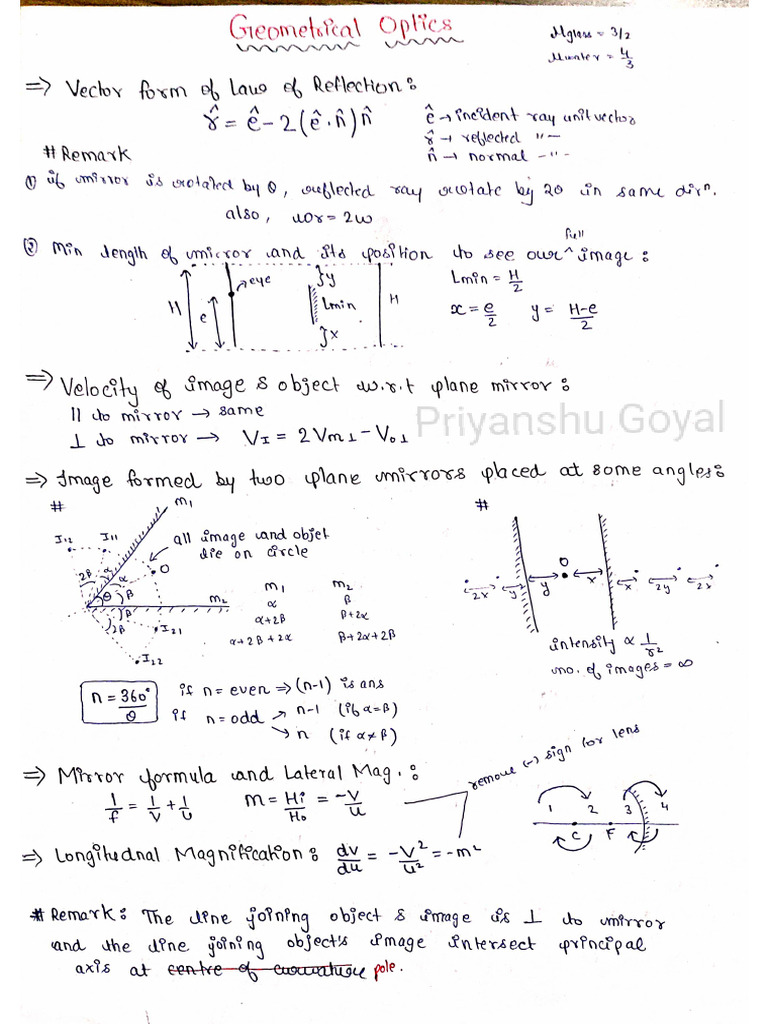 Geometrical Optics
μglass = 3/2
μwater = 4/3
⇒ Vector form of Law of Reflection:
r̂ = ê - 2(ê·n̂)n̂
ê → incident ray unit vector
r̂ → reflected "—
n̂ → normal -"-
# Remark
① if mirror is rotated by θ, reflected ray rotate by 2θ in same dirⁿ.
also, ωr = 2ω
② Min length of mirror and its position to see our ^full image:
H
e
eye
}y
Lmin
}x
H
Lmin = H/2
x = e/2 y = H-e/2
⇒ Velocity of image & object w.r.t plane mirror:
|| to mirror → same
⊥ to mirror → VI = 2Vm⊥ - Vo⊥
Priyanshu Goyal
⇒ Image formed by two plane mirrors placed at some angles:
#
m1
I12 I11
all image and objet
lie on circle
2β α α O
θ β m2
β
2β I21
I22
m1 m2
α β
α+2β β+2α
α+2β+2α β+2α+2β
#
O
2x y y x x 2y 2x
intensity ∝ 1/r2
no. of images = ∞
n = 360°/θ
if n = even ⇒ (n-1) is ans
if n = odd → n-1 (if α=β)
→ n (if α≠β)
⇒ Mirror formula and Lateral Mag.:
1/f = 1/v + 1/u m = Hi/Ho = -v/u
remove (-) sign for lens
1 2 3 4
C F
⇒ Longitudnal Magnification: dv/du = -v2/u2 = -m2
# Remark: The line joining object & image is ⊥ to mirror
and the line joining object's image intersect principal
axis at centre of curvature pole.